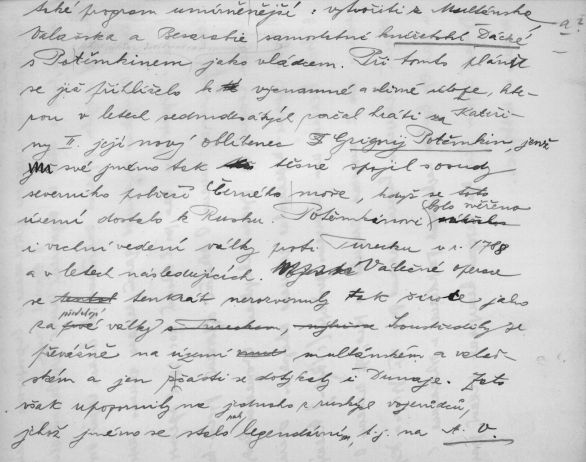 také program umírněnější: vytvořiti z Multánska
Valašska a Besarabie samostatné knížectví Dácké
s Potěmkinem jako vládcem. Při tomto plánu
se již přihlíželo k významné a vlivné úloze, kte-
rou v letech sedmdesátých počal hráti za Kateři-
ny II. její nový oblíbenec Grigorij Potěmkin, jenž
své jméno tak těsně spojil s osudy
severního pobřeží Černého moře, když se toto
území dostalo k Rusku. Potěmkinovi bylo svěřeno
i vrchní vedení války proti Turecku v r. 1788
a v letech následujících. Válečné operace
se tenkrát nerozvinuly tak široce jako
za předešlé války Soustředily se
převážně na území multánském a valaš-
ském a jen zčásti se dotýkaly i Dunaje. Zato
však upomínly na jednoho z ruských vojevůdců,
jehož jméno se stalo pak legendárním, t. j. na A. V.